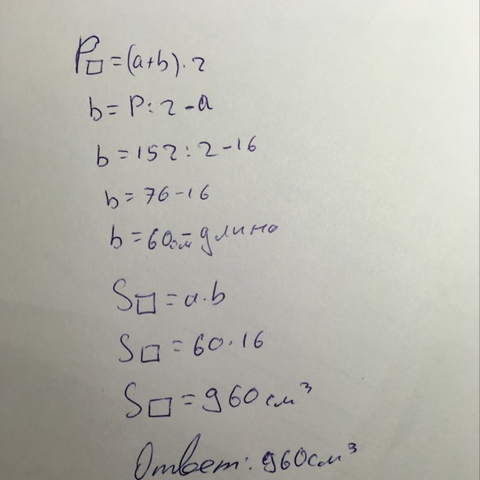 P□=(a+b)·2
b=P:2-a
b=152:2-16
b=76-16
b=60см-длина
S□=a·b
S□=60·16
S□=960см³
Ответ: 960см³